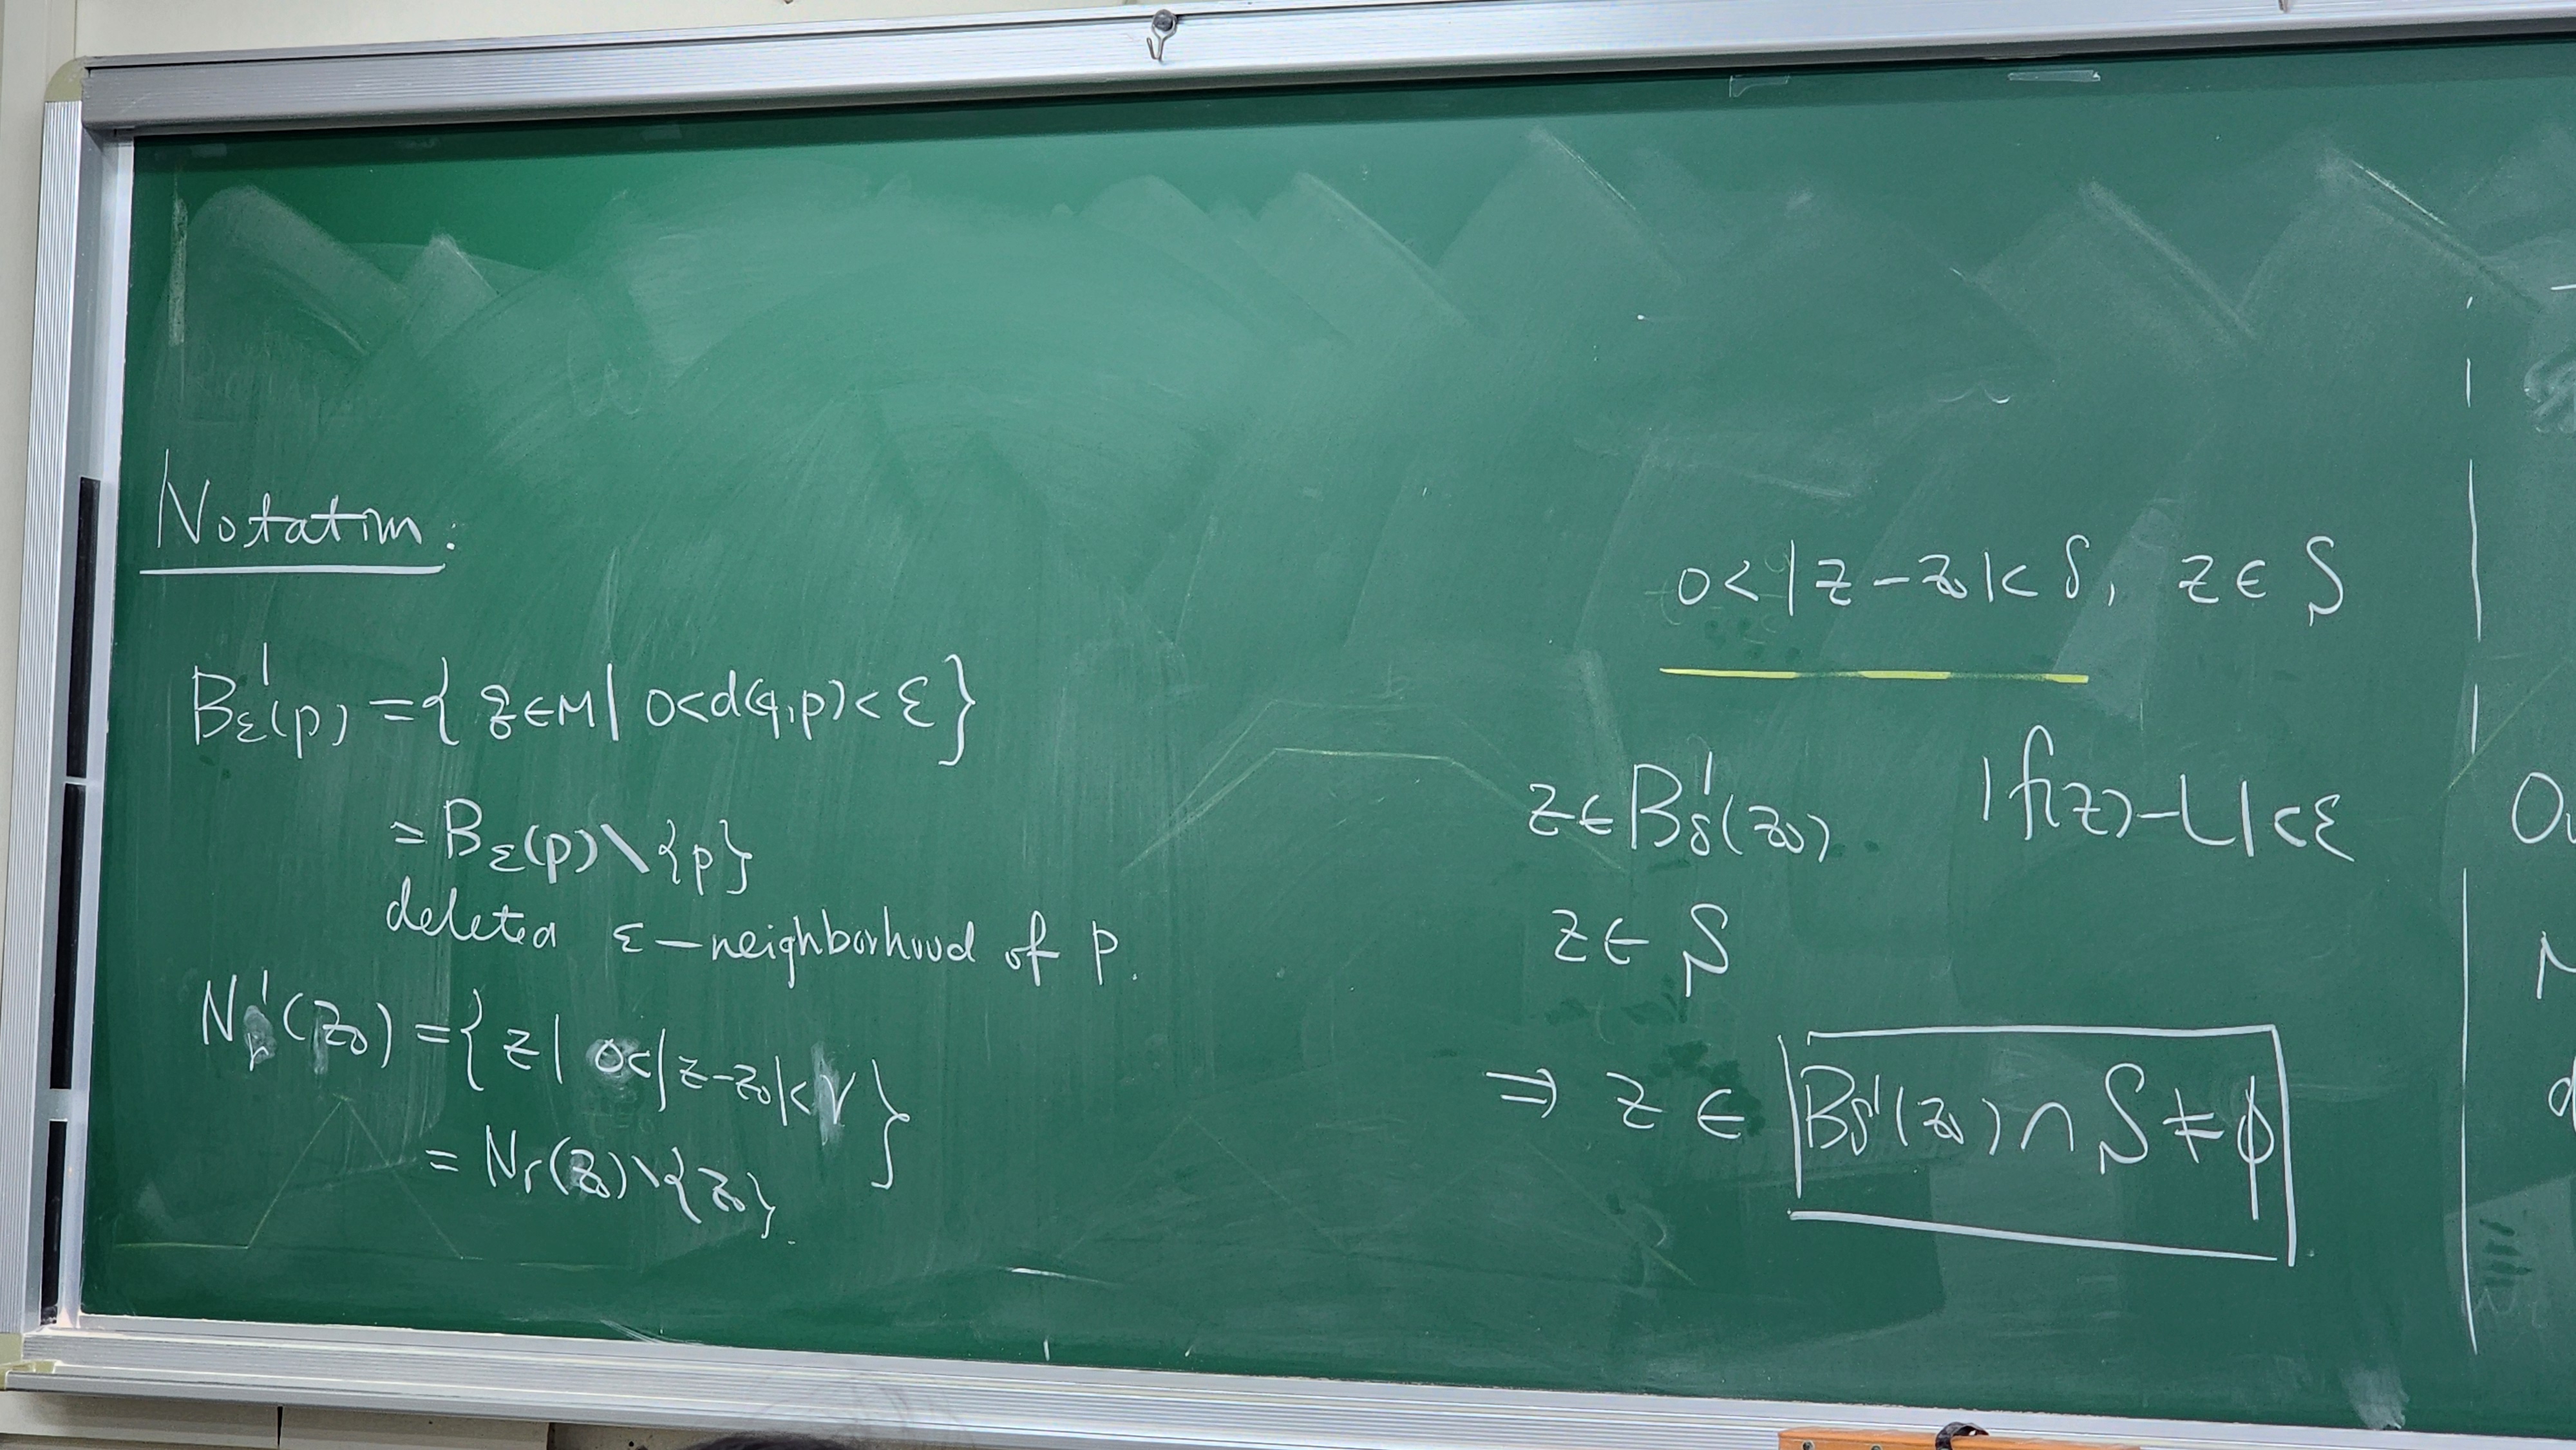 Notation:
B'ε(p) = { q ∈ M | 0 < d(q,p) < ε }
= Bε(p) \ {p}
deleted ε-neighborhood of p.
N'r(z₀) = { z | 0 < |z - z₀| < r }
= Nr(z₀) \ {z₀}.
0 < |z - z₀| < δ, z ∈ S
z ∈ B'δ(z₀) |f(z) - L| < ε
z ∈ S
⇒ z ∈ B'δ(z₀) ∩ S ≠ ∅